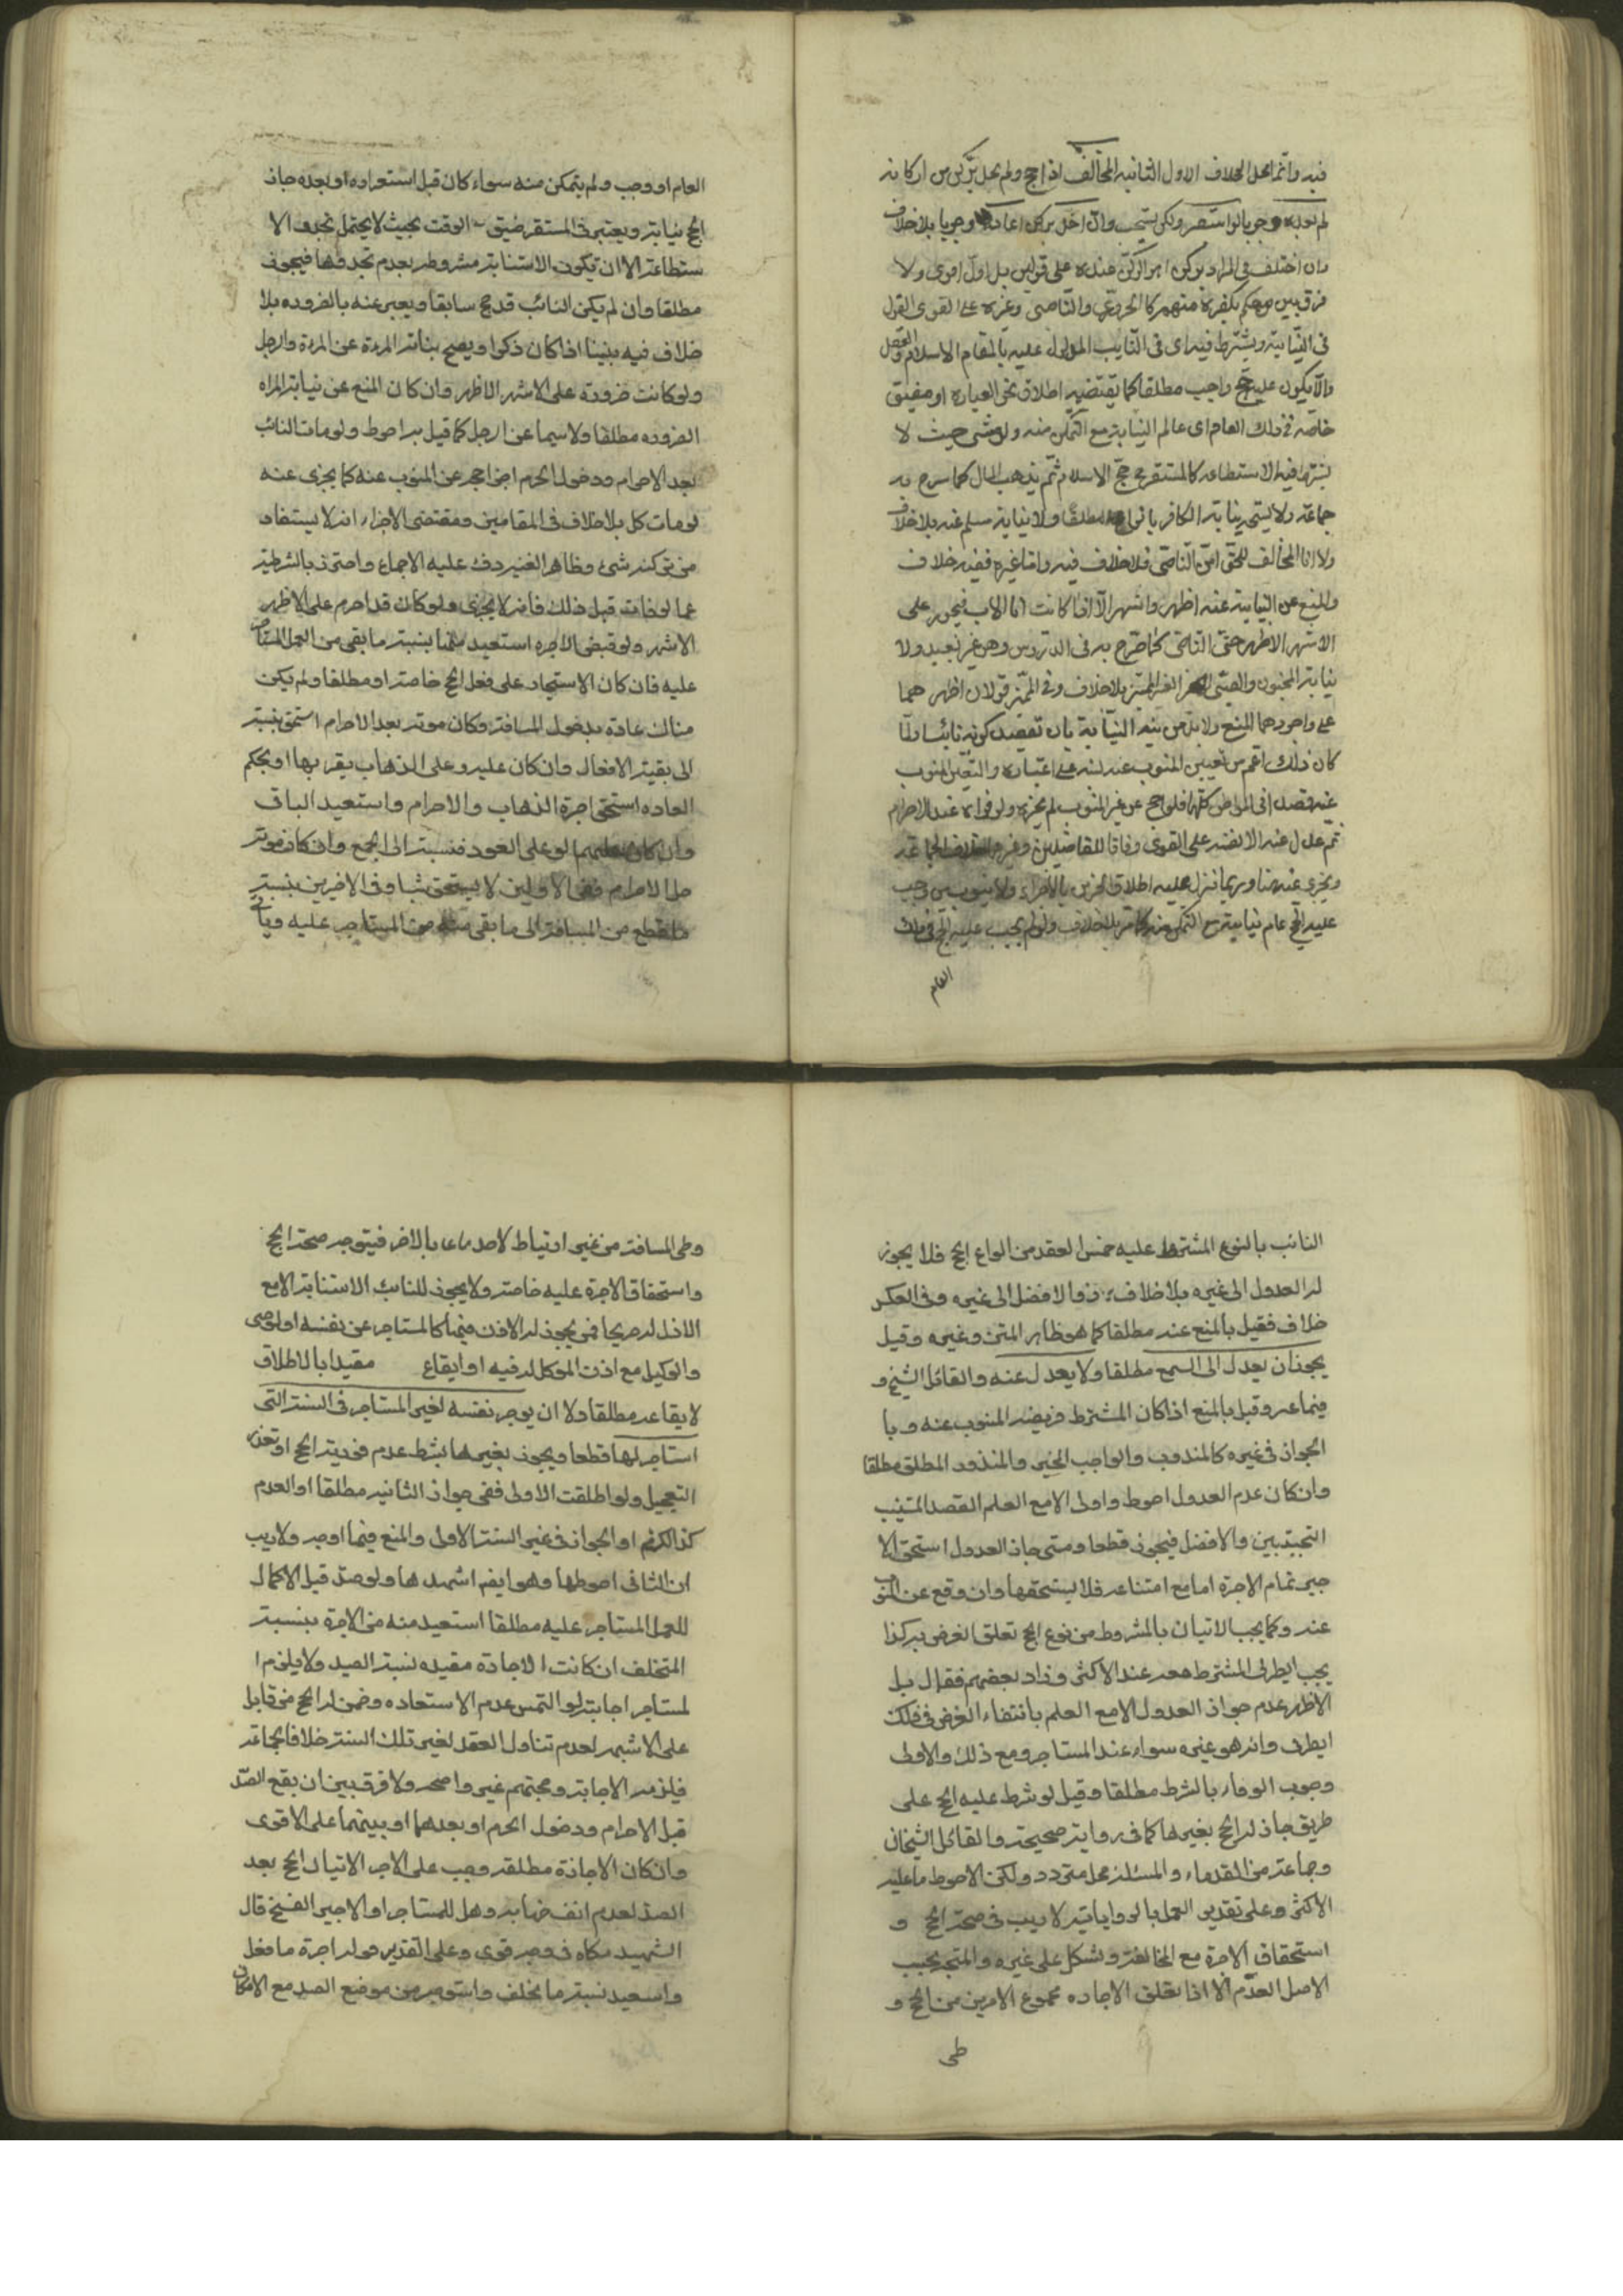 فيه وانما محل الخلاف الاول الثانيه المخالف اذا حج ولم يخل بركن من اركانه
لم يعده وجوبا لو استبصر ولكن يستحب وان اخل بركن اعاد وجوبا بلا خلاف
وان اختلف في المراد بركن اهو الركن عنده على قولين بل اول اقوى ولا
فرق بين من حكم بكفره منهم كالخروجي والناصبي وغيره على القوى القول
في النيابة ويشترط فيه اى في النايب عليه بالمقام الاسلام والعقل
والا يكون عليه حج واجب مطلقا كما يقتضيه اطلاق نحو العبارة او مضيق
خاصه في ذلك العام اى عالم النيابة مع التمكن منه ولو مشى حيث لا
يشترط فيه الاستطاعه كالمستقر حج الاسلام ثم يذهب المال كما صرح به
جماعة ولا ليستحب نيابة الكافر مطلقا ولا نيابة مسلم عنه بلا خلاف
ولا انا المخالف للحق امن الناصبى فلا خلاف فيه واما غيره ففيه خلاف
والمنع عن النيابة عنه اظهر واشهر الا اذا كانت انا الاب فيجوز على
الاشهر الاظهر حتى الناصبى كما صرح به في الدروس وهو غير بعيد ولا
نيابة المجنون والصبى الغير المميز بلا خلاف وفي المميز قولان اظهر هما
على واجودهما المنع ولا بد من نيه النيابة بان تقصد كونه نائبا ولما
كان ذلك اعم من تعيين المنوب عنه نبه على اعتباره والتعين المنوب
عنه قصدا في المواطن كلها فلو حج عن غير المنوب لم يجزه ولو نواه عند الاحرام
ثم عدل عنه الا نفسه على القوى وفاقا للفاضلين وغيرهما لجماعه
ويجزى عنه هنا وربما نزل عليه اطلاق الخبرين بالاجزاء ولا ينوب من وجب
عليه الحج عام نيابته مع التمكن منه كما مر بلا خلاف ولو لم يجب عليه الحج في ذلك
العام
العام او وجب ولم يتمكن منه سواء كان قبل استقراره او بعده جاز
الحج نيابة ويعتبر في المستقر ضيق الوقت بحيث لا يحتمل تجدد الا
ستطاعة الا ان تكون الاستنابة مشروطة بعدم تجددها فيجوز
مطلقا وان لم يكن النائب قد حج سابقا ويعبر عنه بالضروده بلا
خلاف فيه بيننا اذا كان ذكرا ويصح نيابة المرءة عن المرءة والرجل
ولو كانت ضروده على الاشهر الاظهر وان كان المنع عن نيابة المراه
الضروده مطلقا ولا سيما عن الرجل كما قيل به احوط ولو مات النائب
بعد الاحرام ودخول الحرم اجزا حجه عن المنوب عنه كما يجزى عنه
لو مات كل بلا خلاف في المقامين ومقتضى الاجزاء انه لا يستعاد
من تركته شئ وظاهر الغنيه دف عليه الاجماع واحترز بالشرطية
عما لو مات قبل ذلك فانه لا يجزى ولو كان قد احرم على الاظهر
الاشهر ولو قبض الاجره استعيد منها بنسبة ما بقى من العمل المستاجر
عليه فان كان الاستيجار على فعل الحج خاصة او مطلقا ولم يكن
هنالك عادة بدخول المسافة وكان موته بعد الاحرام استحق بنسبة
الى بقية الافعال وان كان عليه وعلى الذهاب بقربها او بحكم
العاده استحق اجرة الذهاب والاحرام واستعيد الباقى
وان كان عليهما لو على العود فنسبته الى الجمع وان كان موته
حل الاحرام ففى الاولين لا يستحق شيئا وفي الاخيرين بنسبة
ما قطع من المسافة الى ما بقى من المستاجر عليه وياتى
النائب بالنوع المشترط عليه خمس العقد من انواع الحج فلا يجوز
له العدول الى غيره بلا خلاف من الافضل الى غيره وفي العكس
خلاف فقيل بالمنع عنه مطلقا كما هو ظاهر المتن وغيره وقيل
يجوز ان يعدل الى السمع مطلقا ولا يعدل عنه والقائل الشيخ و
فيما عه وقيل بالمنع اذا كان المشترط فريضه المنوب عنه وبا
الجواز في غيره كالمندوب والواجب المخير والمنذور المطلق مطلقا
وان كان عدم العدول احوط واولى الا مع العلم القصد المتيب
التجنبين والافضل فيجوز قطعا ومتى جاز العدول استحق الا
جير تمام الاجرة اما مع امتناعه فلا يستحقها وان وقع عن المنوب
عنه وكما يجب الاتيان بالمشروط من نوع الحج تعلق الغرض به كذا
يجب الطرق المشترط معه عند الاكثر وزاد بعضهم فقال بل
الاظهر عدم جواز العدول الا مع العلم بانتفاء الغرض في ذلك
الطرق وانه هو غيره سواء عند المستاجر ومع ذلك والاولى
وجوب الوفاء بالشرط مطلقا وقيل لو شرط عليه الحج على
طريق جاز له الحج بغيرها كما في رواية صحيحة والقائل الشيخان
وجماعة من القدماء والمسئلة محل متردد ولكن الاحوط ما عليه
الاكثر وعلى تقدير العمل بالرواياتيه لا ريب في صحة الحج و
استحقاق الاجرة مع المخالفة ويشكل على غيره والمتجه بحسب
الاصل العدم الا اذا تعلق الاجاره مجموع الامرين من الحج و
طى
وطى المسافة من غير ارتباط لاحدهما بالاخر فيتوجه صحة الحج
واستحقاق الاجرة عليه خاصة ولا يجوز للنائب الاستنابة الا مع
الاذن له صريحا فمن يجوز له الاذن فيها كالمستاجر عن نفسه او الوصى
والوكيل مع اذن الموكل له فيه او ايقاع مقيدا بالاطلاق
لا يقاعه مطلقا ولا ان يوجر نفسه لغير المستاجر في السنة التى
استاجر لها قطعا ويجوز بغيرها بشرط عدم فورية الحج او تعذر
التعجيل ولو اطلقت الاولى ففى جواز الثانيه مطلقا او العدم
كذالكم او الجواز في غير السنة الاولى والمنع فيها اوجه ولا ريب
ان الثانى احوطها وهو ايضا اشهرها ولو صد قبل الاكمال
للعمل المستاجر عليه مطلقا استعيد منه من الاجرة بنسبة
المتخلف ان كانت الاجارة مقيده بسنة الصد ولا يلزم ا
لمستاجر اجابته لو التمس عدم الاستعاده وضمن له الحج من قابل
على الاشبه لعدم تناول العقد لغير تلك السنة خلافا لجماعة
فيلزمه الاجابة وحجتهم غير واضحه ولا فرق بين ان يقع الصد
قبل الاحرام ودخول الحرم او بعدهما او بينهما على الاقوى
وان كان الاجازة مطلقه وجب على الاجير الاتيان الحج بعد
الصد لعدم انفساخها به وهل للمستاجر او الاجير الفسخ قال
الشهيد ملكاه في وجه قوى وعلى التقدير وله اجرة ما فعل
واستعيد نسبة ما تخلف واستوجر من موضع الصد مع الامكان